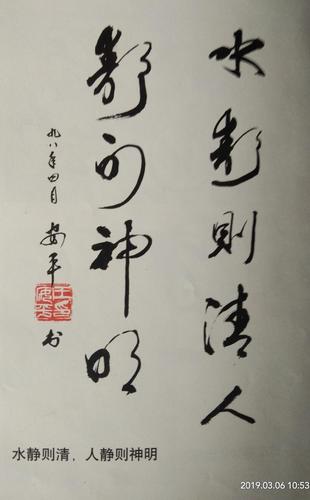 水静則清人
静则神明
九八年四月 安平
书
水静则清，人静则神明
2019.03.06 10:53